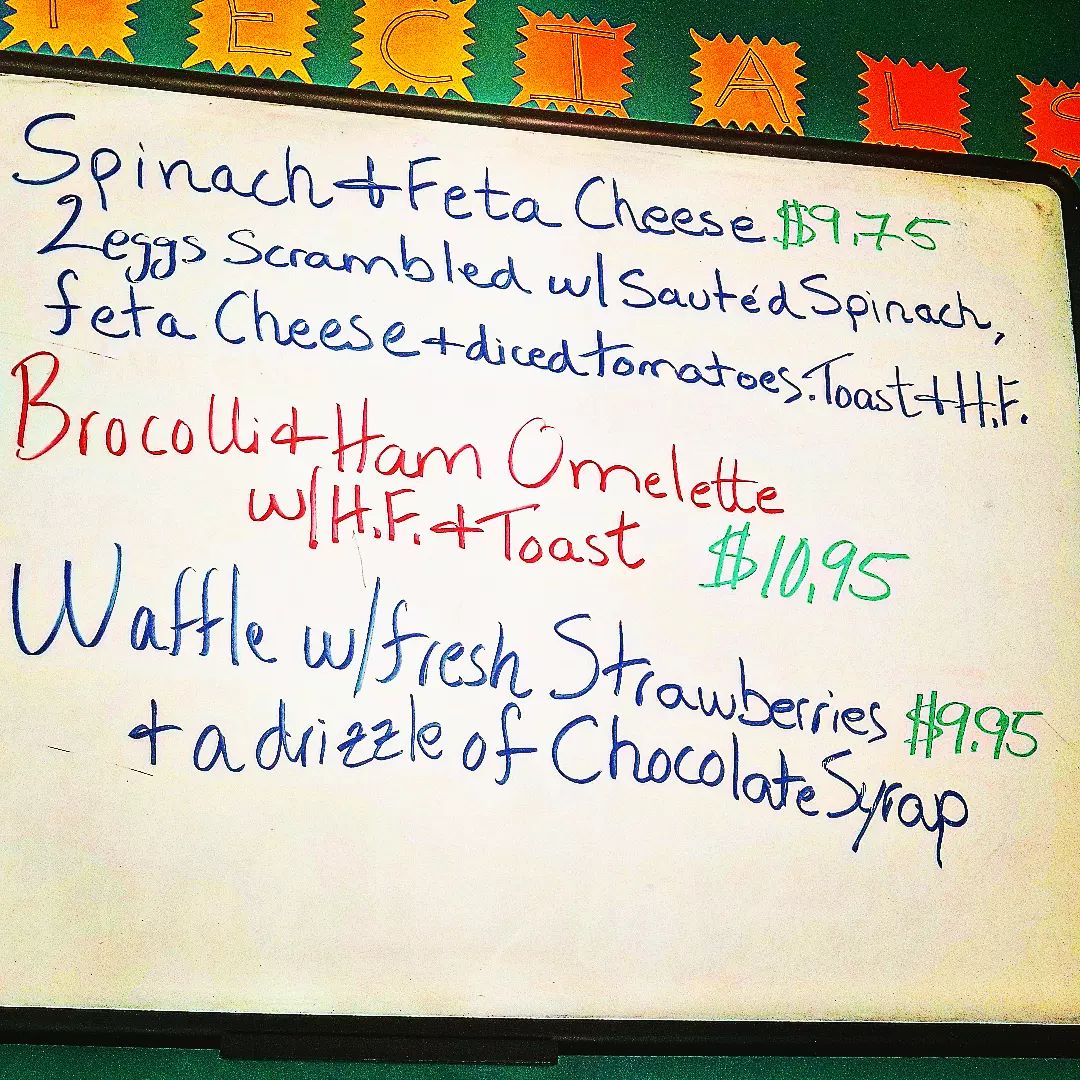 PECIALS
Spinach + Feta Cheese $9.75
2 eggs Scrambled w/ Sautéd Spinach,
feta Cheese + diced tomatoes. Toast + H.F.
Brocolli + Ham Omelette
w/ H.F. + Toast $10.95
Waffle w/ fresh Strawberries $9.95
+ a drizzle of Chocolate Syrap